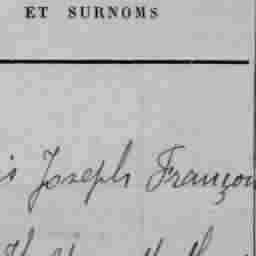 ET SURNOMS
is Joseph Françoi